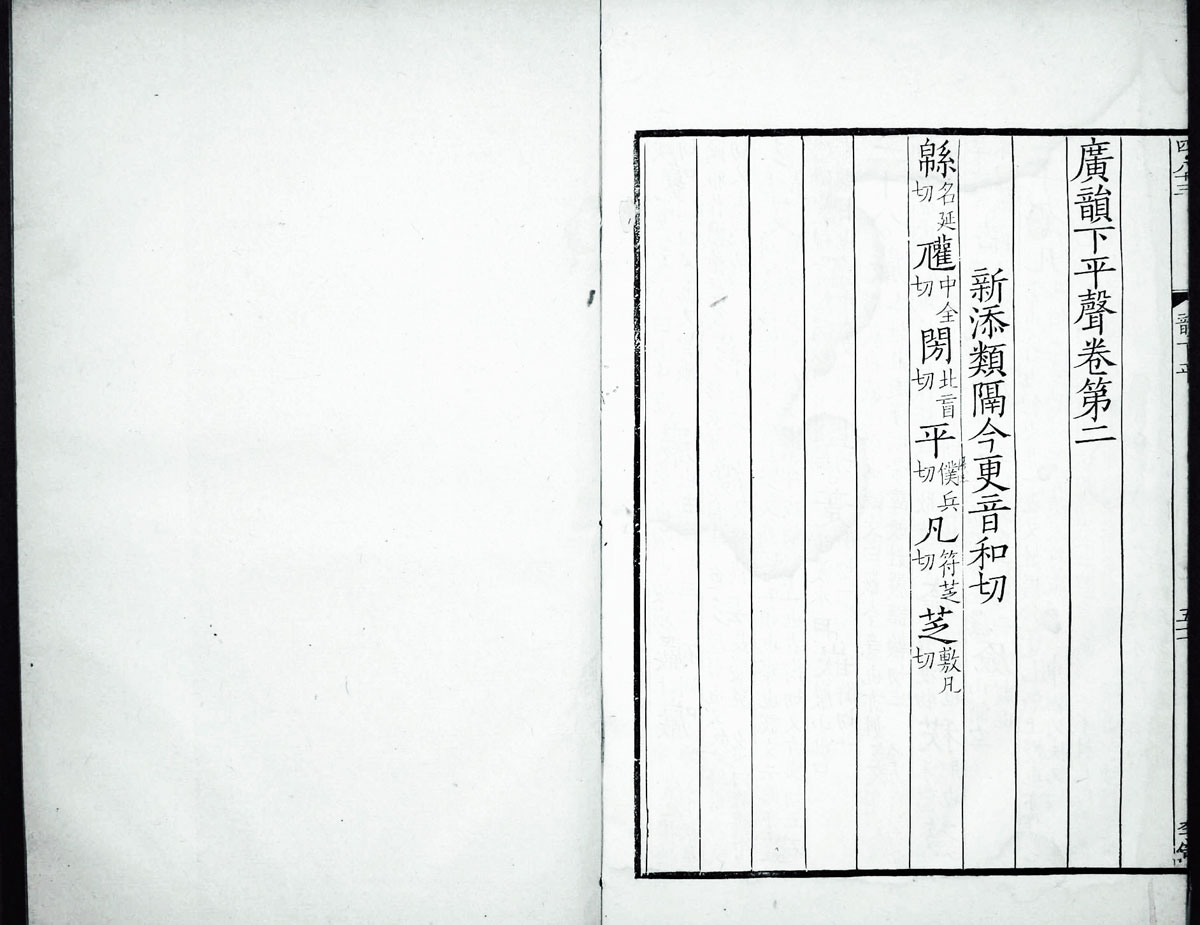 韻下平
廣韻下平聲卷第二
新添類隔今更音和切
緜名延切 中全切閍北盲切平僕兵切凡符芝切芝敷凡切